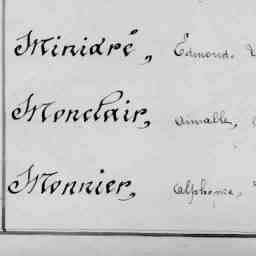 Minidré, Edmond.
Monclair, Amable,
Monnier, Alphonse,